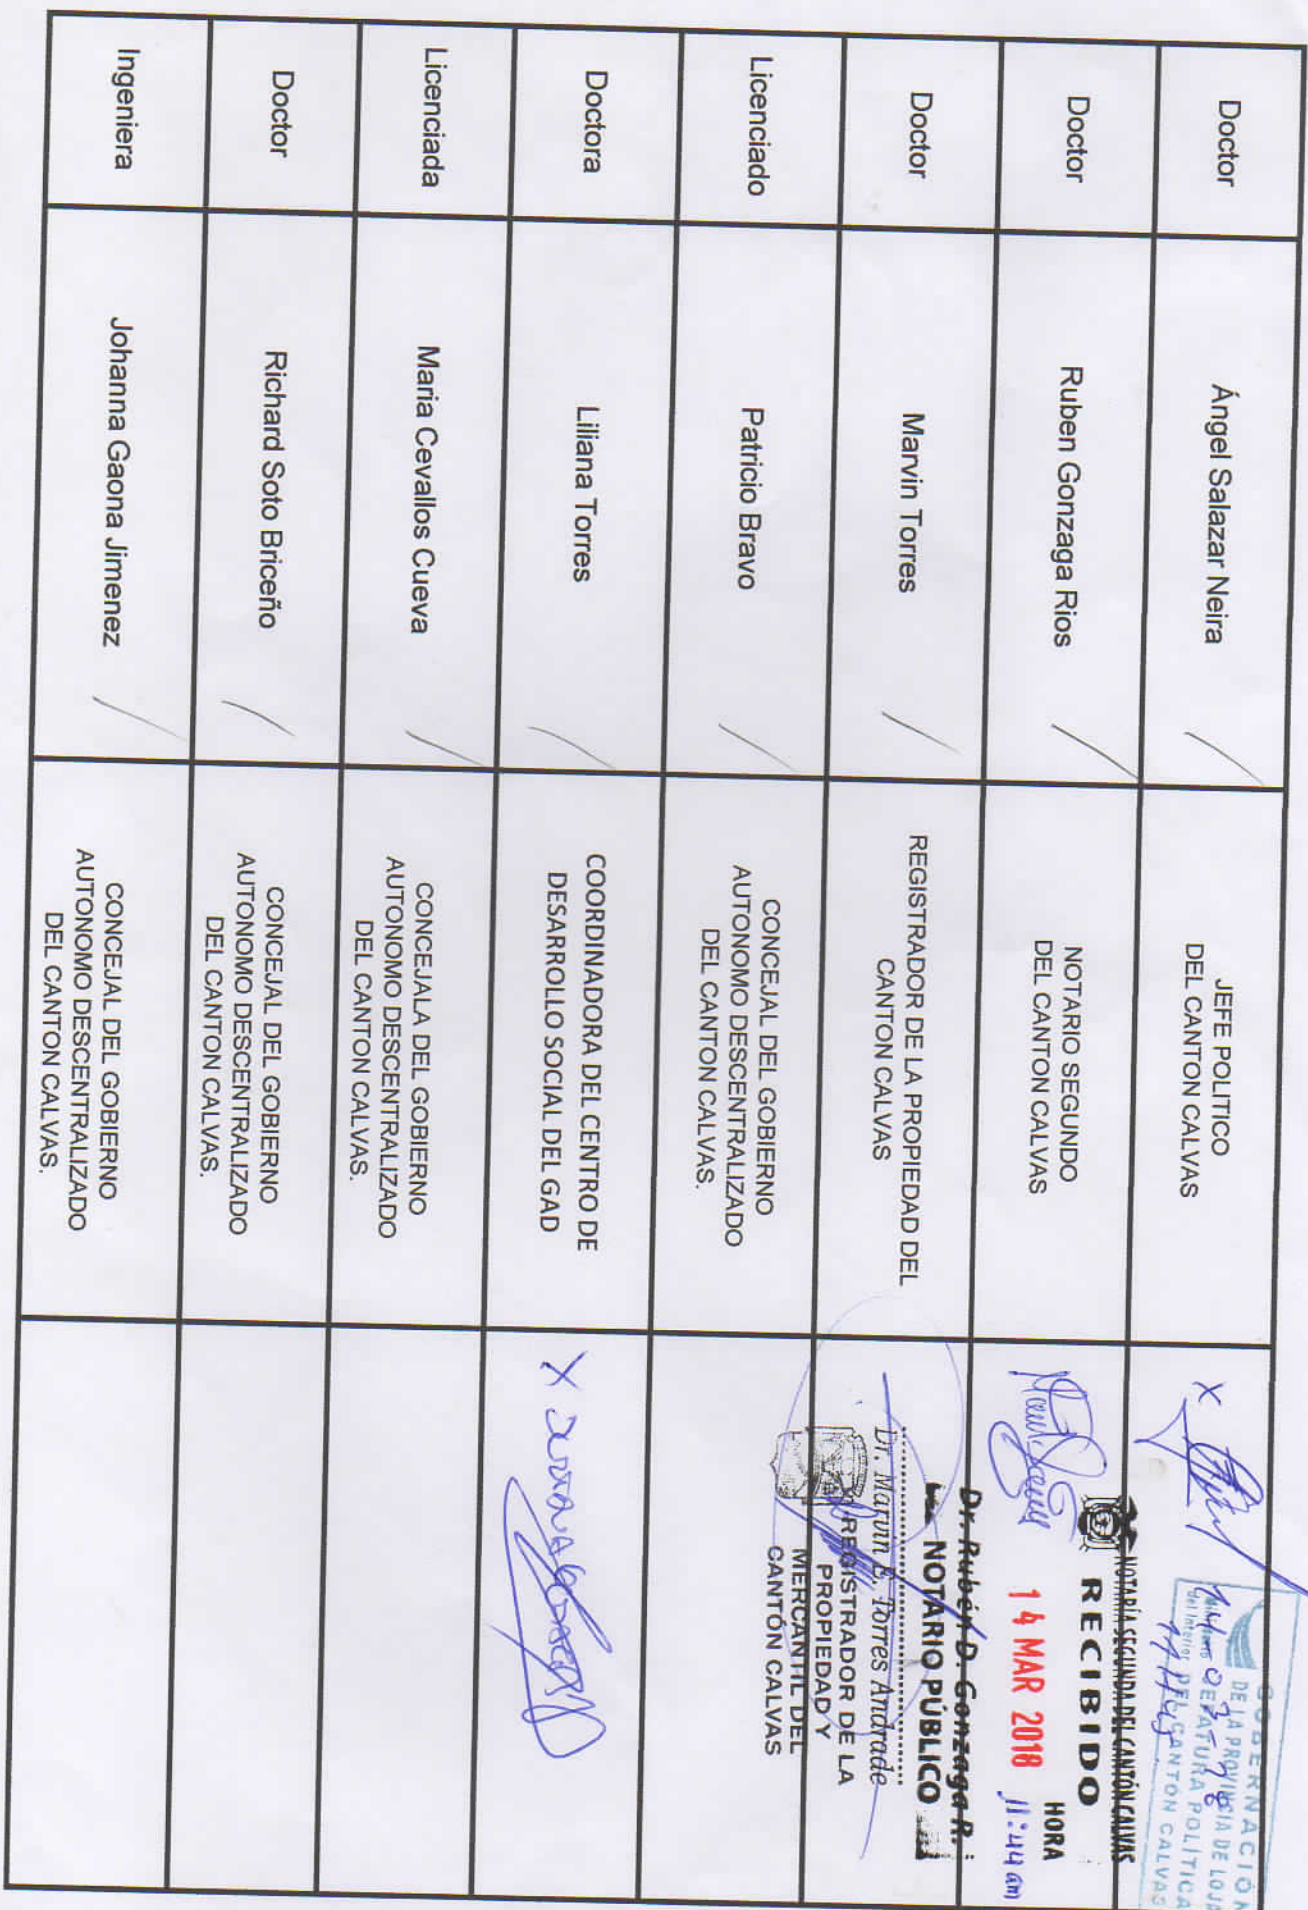 Doctor
Ángel Salazar Neira
JEFE POLITICO
DEL CANTON CALVAS
X
GOBERNACIÓN
DE LA PROVINCIA DE LOJA
JEFATURA POLÍTICA
DEL CANTÓN CALVAS
del Interior
14-03-18
Doctor
Ruben Gonzaga Rios
NOTARIO SEGUNDO
DEL CANTON CALVAS
NOTARÍA SEGUNDA DEL CANTÓN CALVAS
RECIBIDO
14 MAR 2018
HORA
11:44 am
Dr. Rubén D. Gonzaga R.
NOTARIO PÚBLICO
Doctor
Marvin Torres
REGISTRADOR DE LA PROPIEDAD DEL
CANTON CALVAS
Dr. Marvin E. Torres Andrade
REGISTRADOR DE LA
PROPIEDAD Y
MERCANTIL DEL
CANTÓN CALVAS
Licenciado
Patricio Bravo
CONCEJAL DEL GOBIERNO
AUTONOMO DESCENTRALIZADO
DEL CANTON CALVAS.
Doctora
Liliana Torres
COORDINADORA DEL CENTRO DE
DESARROLLO SOCIAL DEL GAD
X
Licenciada
Maria Cevallos Cueva
CONCEJALA DEL GOBIERNO
AUTONOMO DESCENTRALIZADO
DEL CANTON CALVAS.
Doctor
Richard Soto Briceño
CONCEJAL DEL GOBIERNO
AUTONOMO DESCENTRALIZADO
DEL CANTON CALVAS.
Ingeniera
Johanna Gaona Jimenez
CONCEJAL DEL GOBIERNO
AUTONOMO DESCENTRALIZADO
DEL CANTON CALVAS.